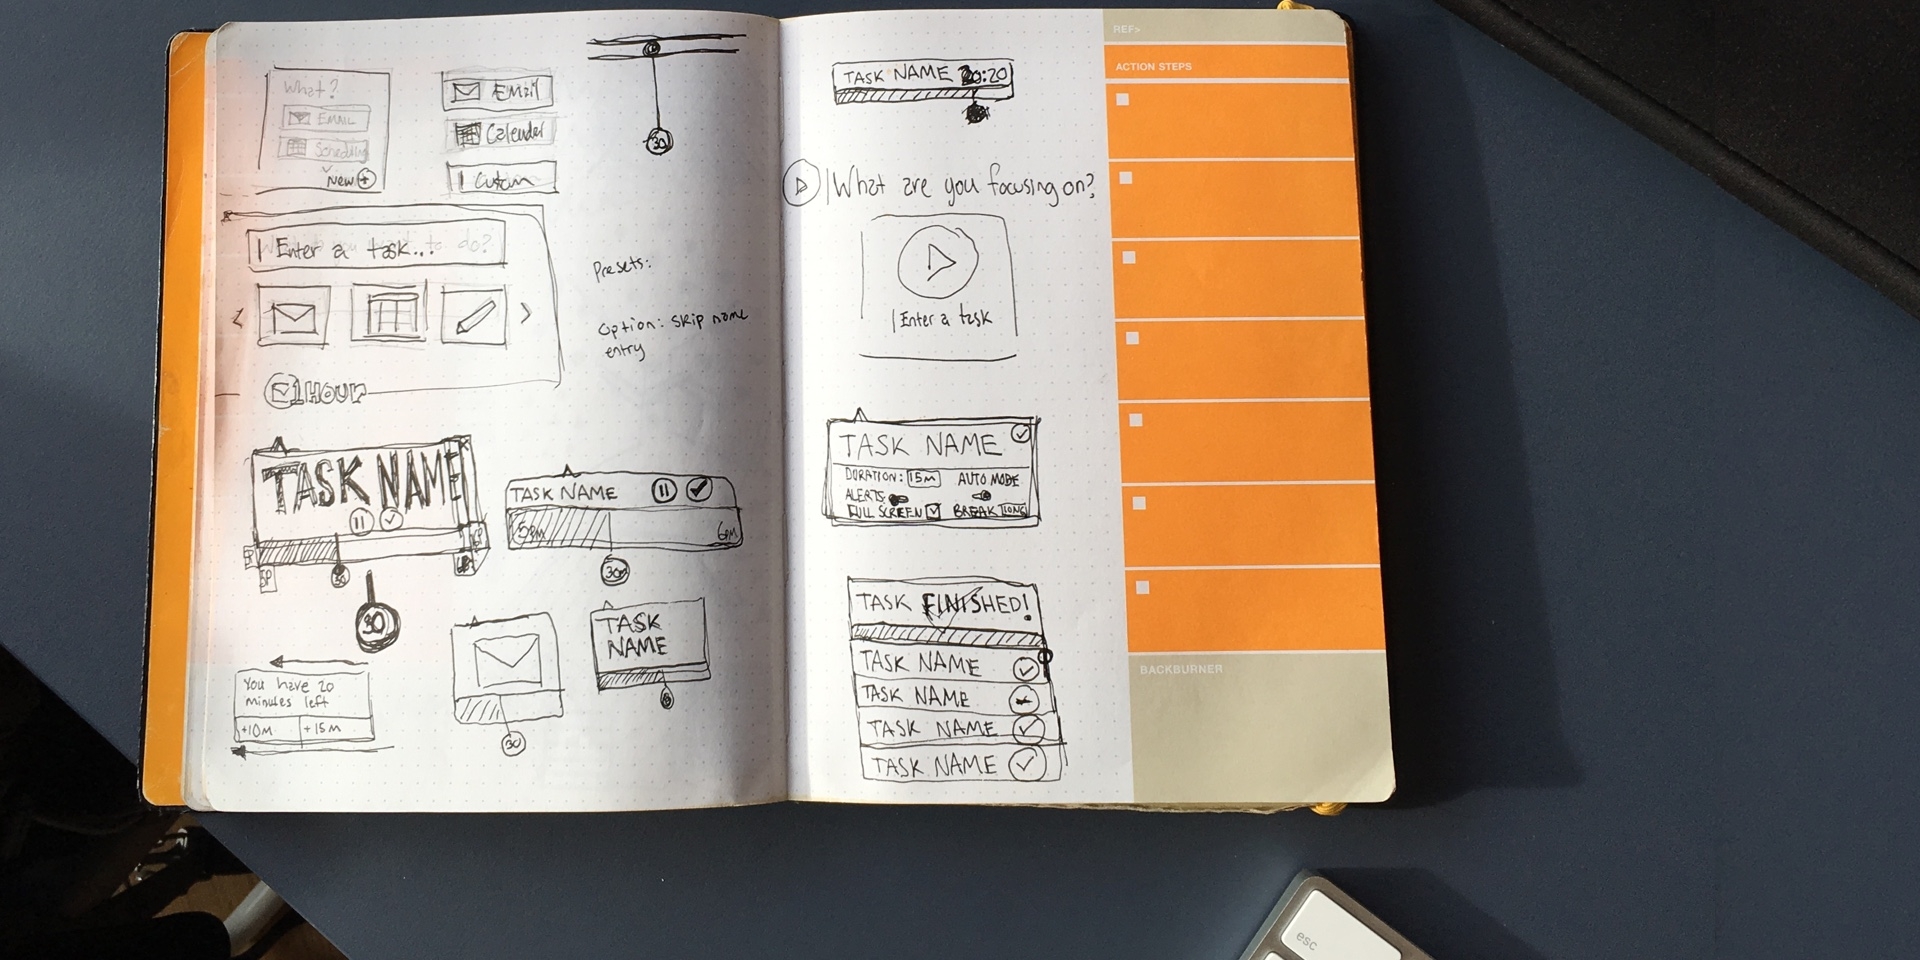 What?
EMAIL
New +
Email
Calender
30
Enter a task...
to do?
Presets:
Option: skip name
entry
1 HOUR
TASK NAME
5P
30
30
TASK NAME
5PM
6PM
30
30
TASK
NAME
You have 20
minutes left
+10M
+15M
TASK NAME
:20
What are you focusing on?
Enter a task
TASK NAME
DURATION: 15M
AUTO MODE
ALERTS:
FULL SCREEN
BREAK LONG
TASK FINISHED!
TASK NAME
TASK NAME
TASK NAME
TASK NAME
REF>
ACTION STEPS
BACKBURNER
esc